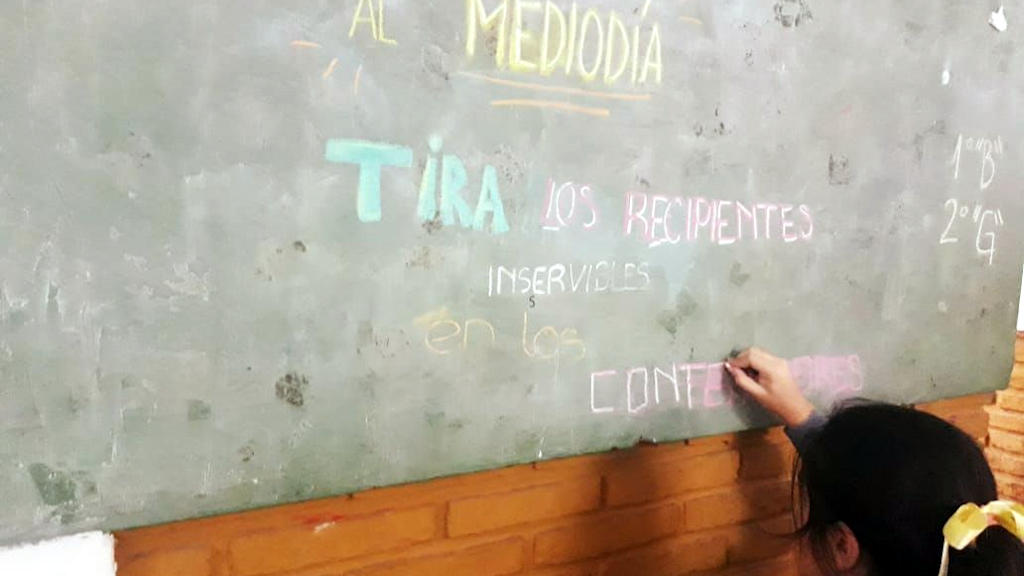 AL MEDIODÍA
TIRA LOS RECIPIENTES
INSERVIBLES
S
en los
1° "B"
2° "G"